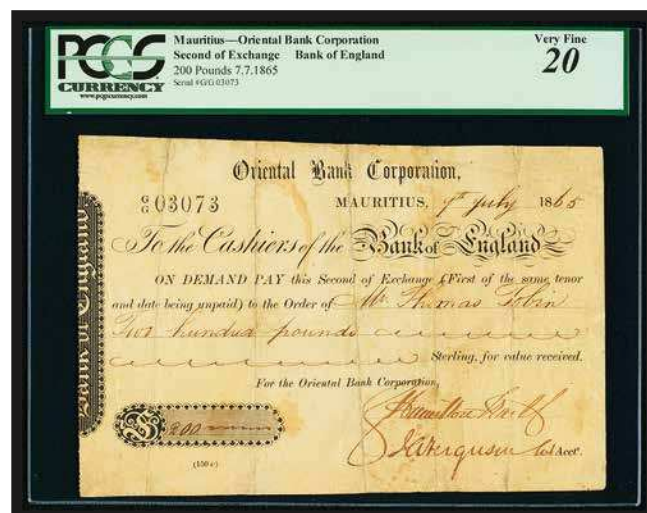 PCGS
CURRENCY
www.pcgscurrency.com
Mauritius—Oriental Bank Corporation
Second of Exchange Bank of England
200 Pounds 7.7.1865
Serial #G/G 03073
Very Fine
20
Oriental Bank Corporation,
G/G 03073 MAURITIUS, 7th July 1865
To the Cashiers of the Bank of England
ON DEMAND PAY this Second of Exchange (First of the same tenor
and date being unpaid) to the Order of Mr. Thomas Tobin
Two hundred pounds
Sterling, for value received.
For the Oriental Bank Corporation,
£ 200
(150 c)
Acct.
Bank of England